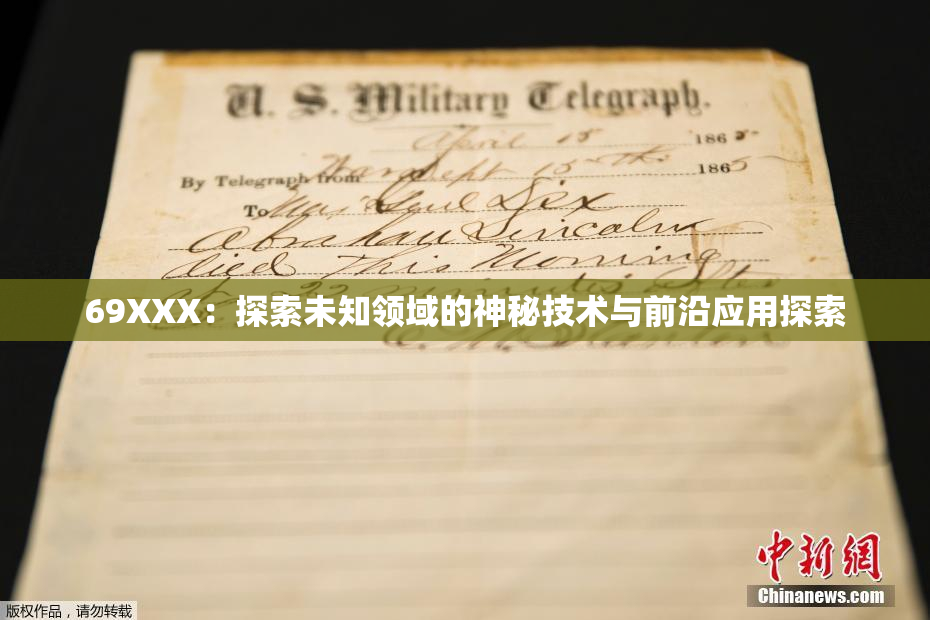 U. S. Military Telegraph.
April 15 1865
By Telegraph from War Dept 15th 1865
To Maj Genl Dix
Abraham Lincoln
died This Morning
at 22 minutes after
69XXX：探索未知领域的神秘技术与前沿应用探索
E. M. Stanton
中新网
Chinanews.com
版权作品，请勿转载